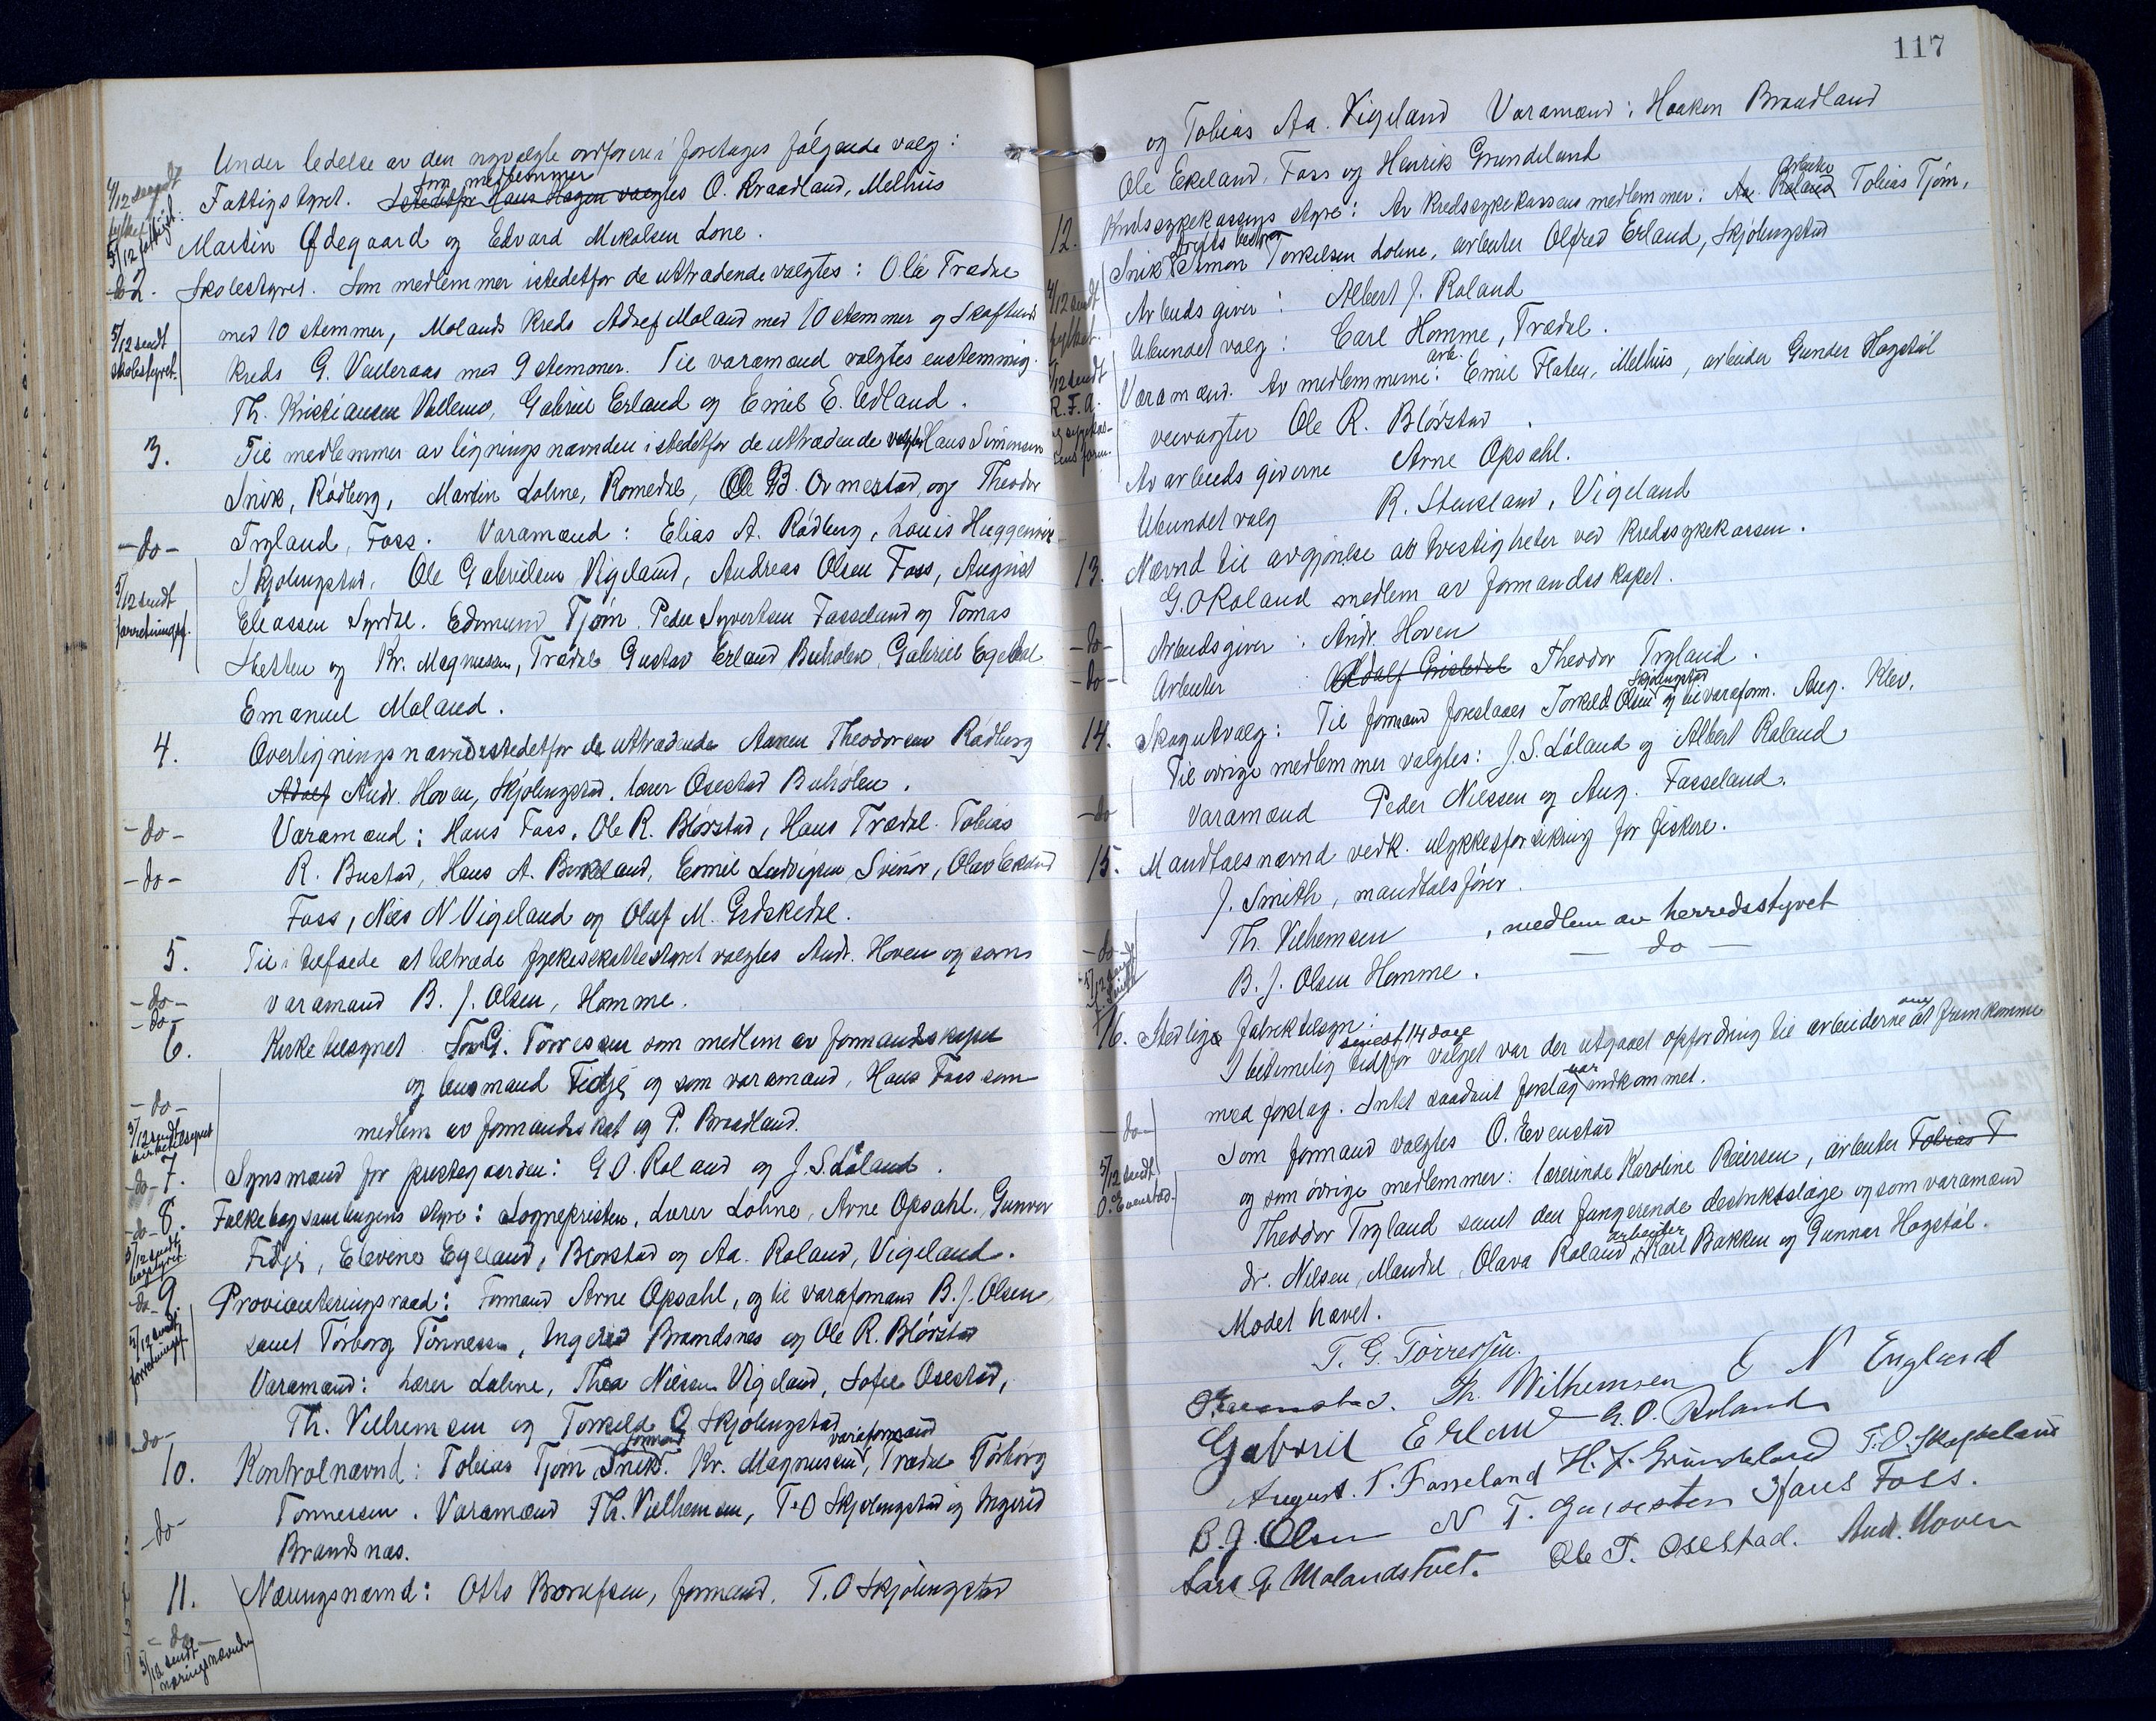 Under ledelse av den nyvalgte ordfører foretages følgende valg:
4/12 sendt fylket
5/12 fattigst.
Fattigstyret. Istedetfor Hans Hagen valgtes som medlemmer O. Braadland, Melhus
Martin Ødegaard og Edvard Mikalsen Lone.
2. Skolestyret. Som medlemmer istedetfor de uttrædende valgtes: Ola Trædal
med 10 stemmer, Molands kreds Adolf Moland med 10 stemmer og
5/12 sendt skolestyret.
kreds G. Valleraas med 9 stemmer. Til varamænd valgtes enstemmig
Th. Kristiansen Gabriel Erland og Emil E. Udland.
3. Til medlemmer av ligningsnævnden istedetfor de uttrædende valgtes Hans Simonsen
Snik, Rødberg, Martin Lohne, Romedal, Ole B. Ormestad, og Theodor
-do- Trygland, Foss. Varamænd: Elias A. Rødberg, Louis Huggenvik
5/12 sendt forretningsf.
Skjølingstad, Ole Gabrielsen Vigeland, Andreas Olsen Foss, August
Eliassen Syrdal. Edmund Tjøm. Peder Syvertsen Fasseland og Tomas
og Kr. Magnussen, Trædal Gustav Erland Buhølen, Gabriel Egeland
Emanuel Moland.
4. Overligningsnævnd istedetfor de uttrædende Aanen Theodorsen Rødberg
Adolf Andr. Hoven, Skjølingstad, lærer Osestad Buhølen.
-do- Varamænd: Hans Foss, Ole R. Blørstad, Hans Trædal. Tobias
-do- R. Bustad, Hans A. Birkeland, Emil Ludvigsen Svinør, Olav Ekeland
Foss, Nils N Vigeland og Oluf M. Gidskedal.
5. Til i tilfælde at tiltræde fylkesskattestyret valgtes Andr. Hoven og som
-do- varamand B. J. Olsen, Homme.
-do-
6. Kirketilsynet T. G. Torressen som medlem av formandskapet
og lensmand Fidje og som varamænd, Hans Foss som
-do- medlem av formandskat og P. Braadland.
5/12 sendt kirketilsynet
-do- 7. Synsmænd for prestegaarden: G. O. Roland og J. S. Løland.
-do- 8. Folkeboksamlingens styre: Sognepresten, Lærer Lohne, Arne Opsahl, Gunvor
5/12 sendt
Fidje, Elevine Egeland, Blørstad og Aa. Roland, Vigeland.
-do- 9. Provianteringsraad: Formand Arne Opsahl, og til varaformand B. J. Olsen
5/12 sendt forretningsf.
samt Torborg Tønnessen, Ingerid Brandsnes og Ole R. Blørstad
Varamænd: Lærer Lohne, Thea Nielsen Vigeland, Sofie Osestad,
-do- Th. Vilhemsen og Torkild O Skjølingstad
10. Kontrolnævnd: Tobias Tjøm, Snik. formand Kr. Magnussen, varaformand Trædal Torborg
-do- Tønnessen. Varamænd Th. Vilhemsen, T. O Skjølingstad og Ingerid
Brandsnes.
11. Næringsnævnd: Otto Baardsen, formand. T. O Skjølingstad
-do-
5/12 sendt næringsnævnden
117
og Tobias Aa. Vigeland Varamænd: Haakon Braadland
Ole Ekeland, Foss og Henrik Grundeland
12. Kredssykekassens styre: Av kredssykekassens medlemmer: Aa. Roland arbeider Tobias Tjøm,
Snik, Simon Torkelsen Lohne, arbeider Alfred Erland, Skjølingstad
4/12 sendt fylket.
Arbeidsgiver: Albert J. Roland
Ubundet valg: Carl Homme, Trædal.
5/12 sendt R.F.A.
Varamænd. Av medlemmerne: arb. Emil Flaten, Melhus, arbeider Gunder Hogstøl
veivagter Ole R. Blørstad.
Av arbeidsgiverne Arne Opsahl.
Ubundet valg R. Stusland, Vigeland
13. Nævnd til avgjørelse av tvistigheter ved kredssykekassen.
G. O Roland medlem av formandsskapet.
-do- Arbeidsgiver: Andr. Hoven
-do- Arbeider: Theodor Trygland.
14. Skogutvalg: Til formand foreslaaes Torkeld Olsen Skjølingstad og til varaform. Aug. Klev.
Til øvrige medlemmer valgtes: J. S. Løland og Albert Roland
-do- Varamænd Peder Nielsen og Aug. Fasseland.
15. Mandtalsnævnd vedk. ulykkesforsikring for fiskere.
J. Smith, mandtalsfører.
-do- Th. Vilhemsen, medlem av herredsstyret
5/12 sendt J. Smith
B. J. Olsen Homme. — do —
16. Stedlige fabriktilsyn:
I betimelig tid senest 14 dage før valget var der utgaaet opfordring til arbeiderne om at fremkomme
-do- med forslag. Intet saadant forslag var indkommet.
Som formand valgtes O. Evenstad
5/12 sendt O. Evenstad.
og som øvrige medlemmer: lærerinde Karoline Reiersen, arbeider Tobias T
Theodor Trygland samt den fungerende distriktslæge og som varamænd
dr. Nilsen, Mandal, Olava Roland, arbeider Karl Bakken og Gunnar Hogstøl.
Mødet hævet.
T. G. Torressen.
O. Evenstad. Th. Wilhemsen E N England
Gabriel Erland G. O. Roland
August. T. Fasseland H. J. Grundeland T. O. Skjølingstad
B. J. Olsen N T. Hans Foss.
Lars G Molandstvet. Ole T. Osestad. Andr. Hoven